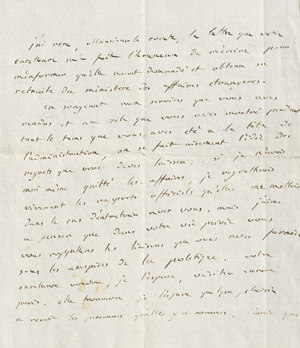 j'ai reçu, Monsieur le comte, la lettre que votre
excellence m'a fait l'honneur de m'écrire pour
m'informer qu'elle avait demandé et obtenu sa
retraite du ministère des affaires étrangères.
en songeant aux services que vous avez
rendus et au zèle que vous avez montré pendant
tout le tems que vous avez été à la tête de
l'administration, on se fait aisément l'idée des
regrets que vous devez laisser. si je n'avais
moi même quitté les affaires, je regretterais
vivement les rapports officiels qu'elles me mettraient
dans le cas d'entretenir avec vous, mais j'aime
à penser que dans votre vie privée vous
vous rappellerez les liaisons que vous avez formées
sous les auspices de la politique. votre
excellence voudra, je l'espère, visiter encore
paris. elle trouvera je l'espère quelque plaisir
à revoir les personnes qu'elle y a connues.